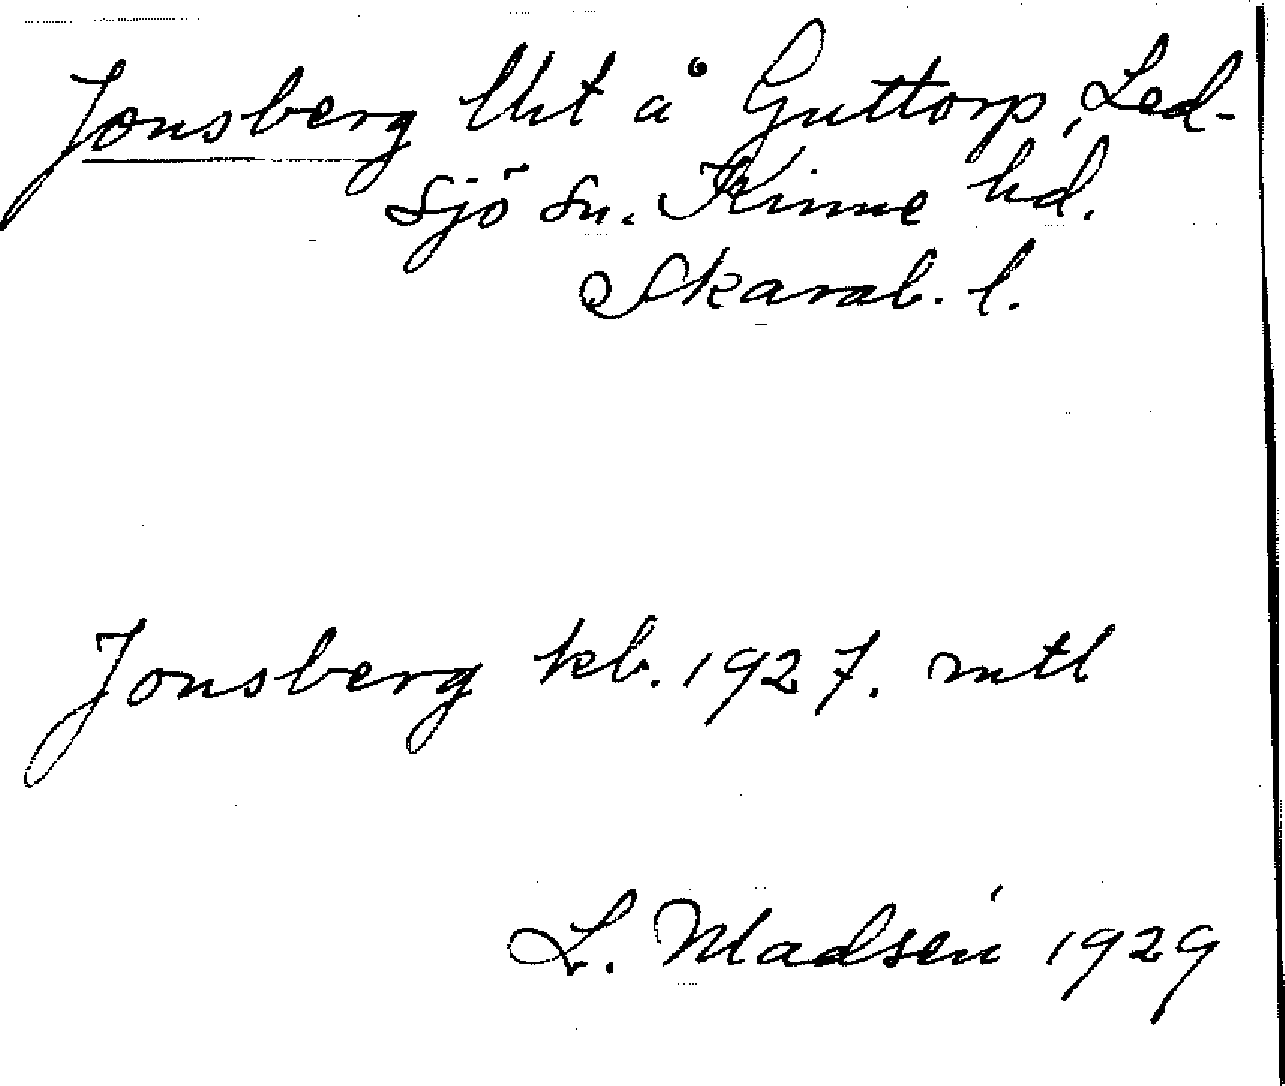 Jonsberg lht å Guttorp, Led-
sjö sn. Kinne hd.
Skarab. l.
Jonsberg kb. 1927. mtl
L. Madsén 1929